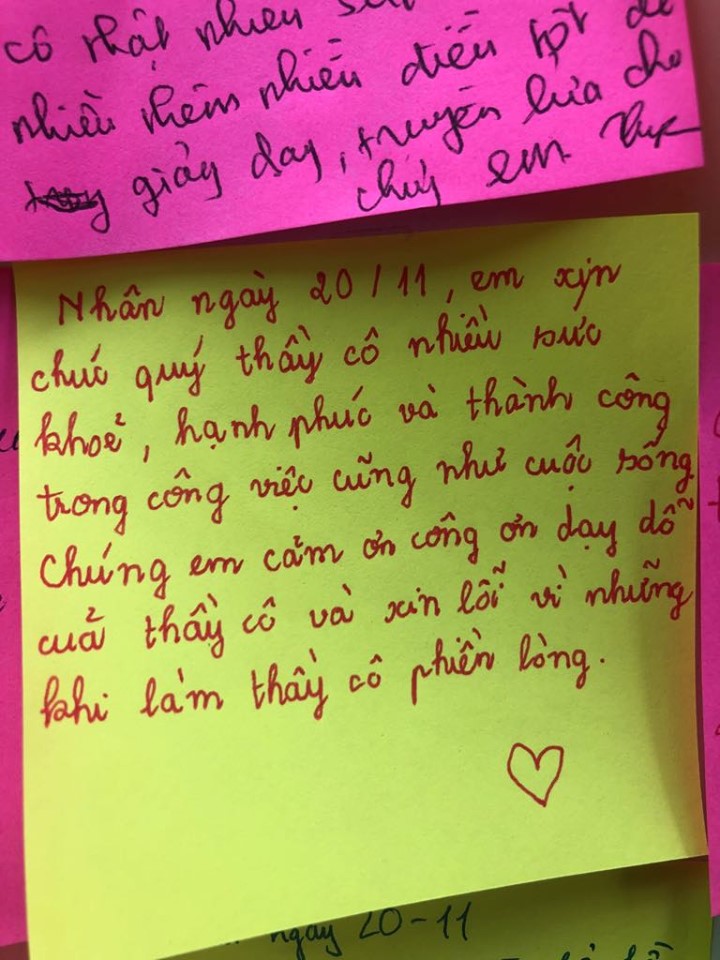 cô thật nhiều
nhiều thêm nhiều điều tốt để
giảng dạy, truyền lửa cho
chúng em
Nhân ngày 20/11, em xin
chúc quý thầy cô nhiều sức
khoẻ, hạnh phúc và thành công
trong công việc cũng như cuộc sống
Chúng em cảm ơn công ơn dạy dỗ
cuả thầy cô và xin lỗi vì những
khi làm thầy cô phiền lòng.
ngày 20-11